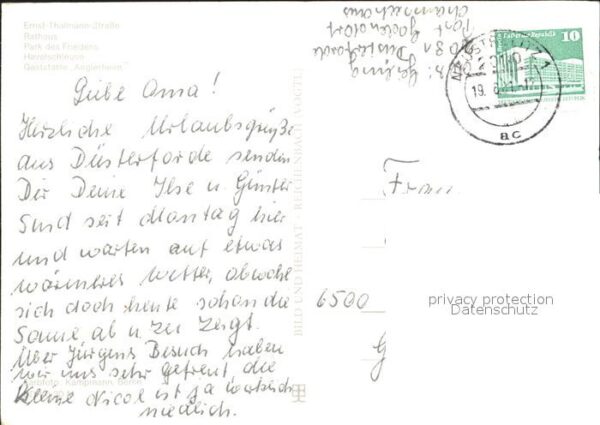 Ernst-Thälmann-Straße
Rathaus
Park des Friedens
Havelschleuse
Gaststätte "Anglerheim"
Liebe Oma!
Herzliche Urlaubsgrüße
aus Düsterförde senden
Dir Deine Ilse u. Günter
Sind seit Montag hier
und warten auf etwas
wärmeres Wetter, obwohl
sich doch heute schon die
Sonne ab u. zu zeigt.
Über Jürgens Besuch haben
wir uns sehr gefreut, die
kleine Nicol ist ja wirklich
niedlich.
Farbfoto: Kampmann, Berlin
BILD UND HEIMAT · REICHENBACH (VOGTL)
2081 Düsterförde
Post Godendorf
10
19.
ac
Frau
6500
G
privacy protection
Datenschutz